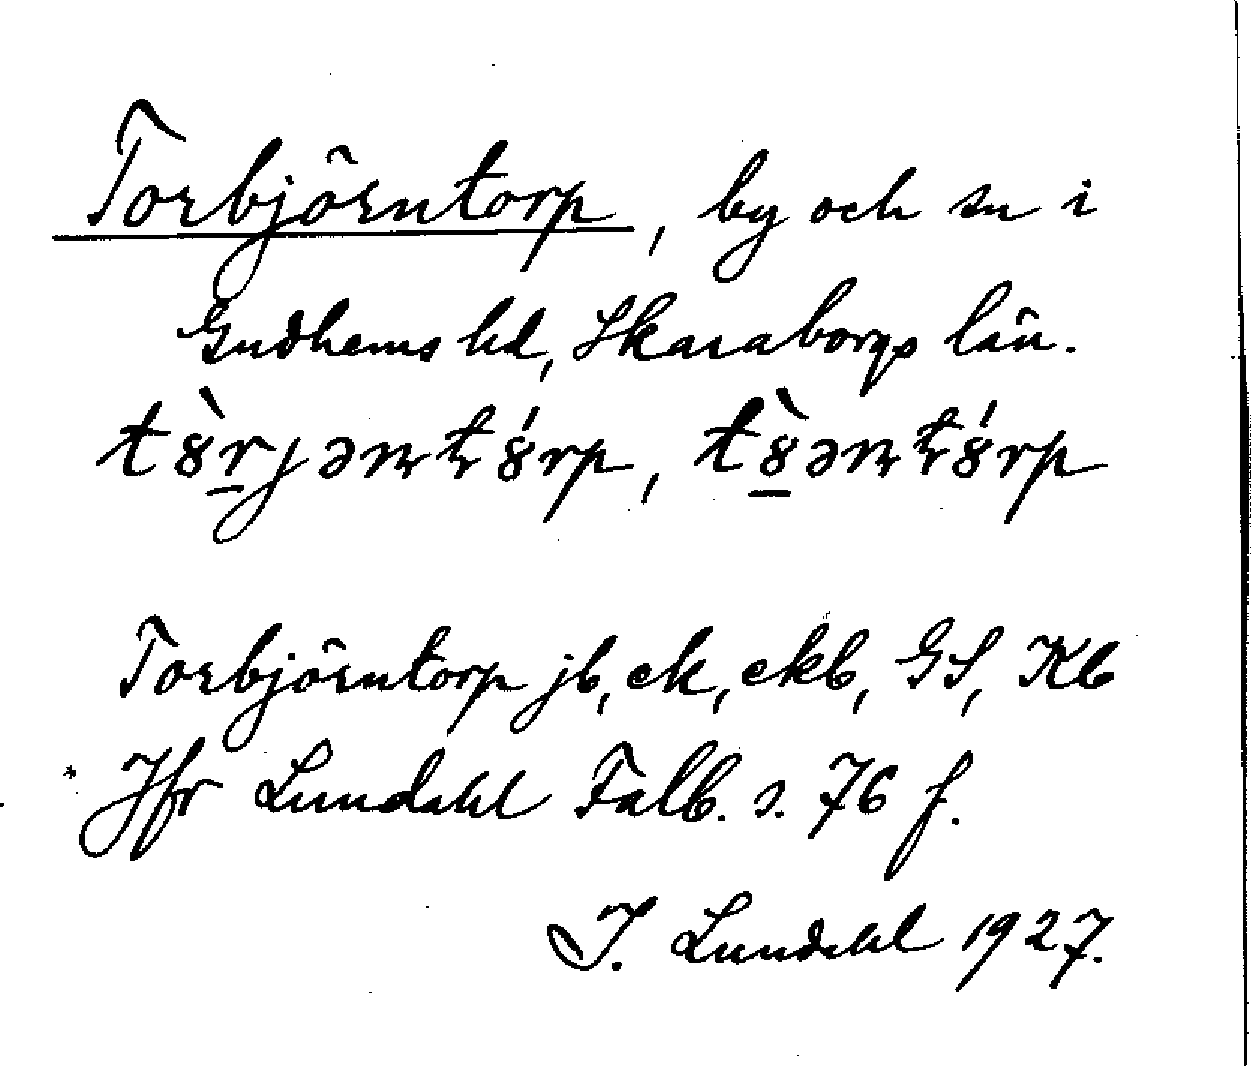 Torbjörntorp, by och sn i
Gudhems hd, Skaraborgs län.
tȣ̀r̠jəntȣ́rp, tȣ̠̀əntȣ́rp
Torbjörntorp jb, ek, ekb, GS, Kb
Jfr Lundahl Falb. s. 76 f.
I. Lundahl 1927.